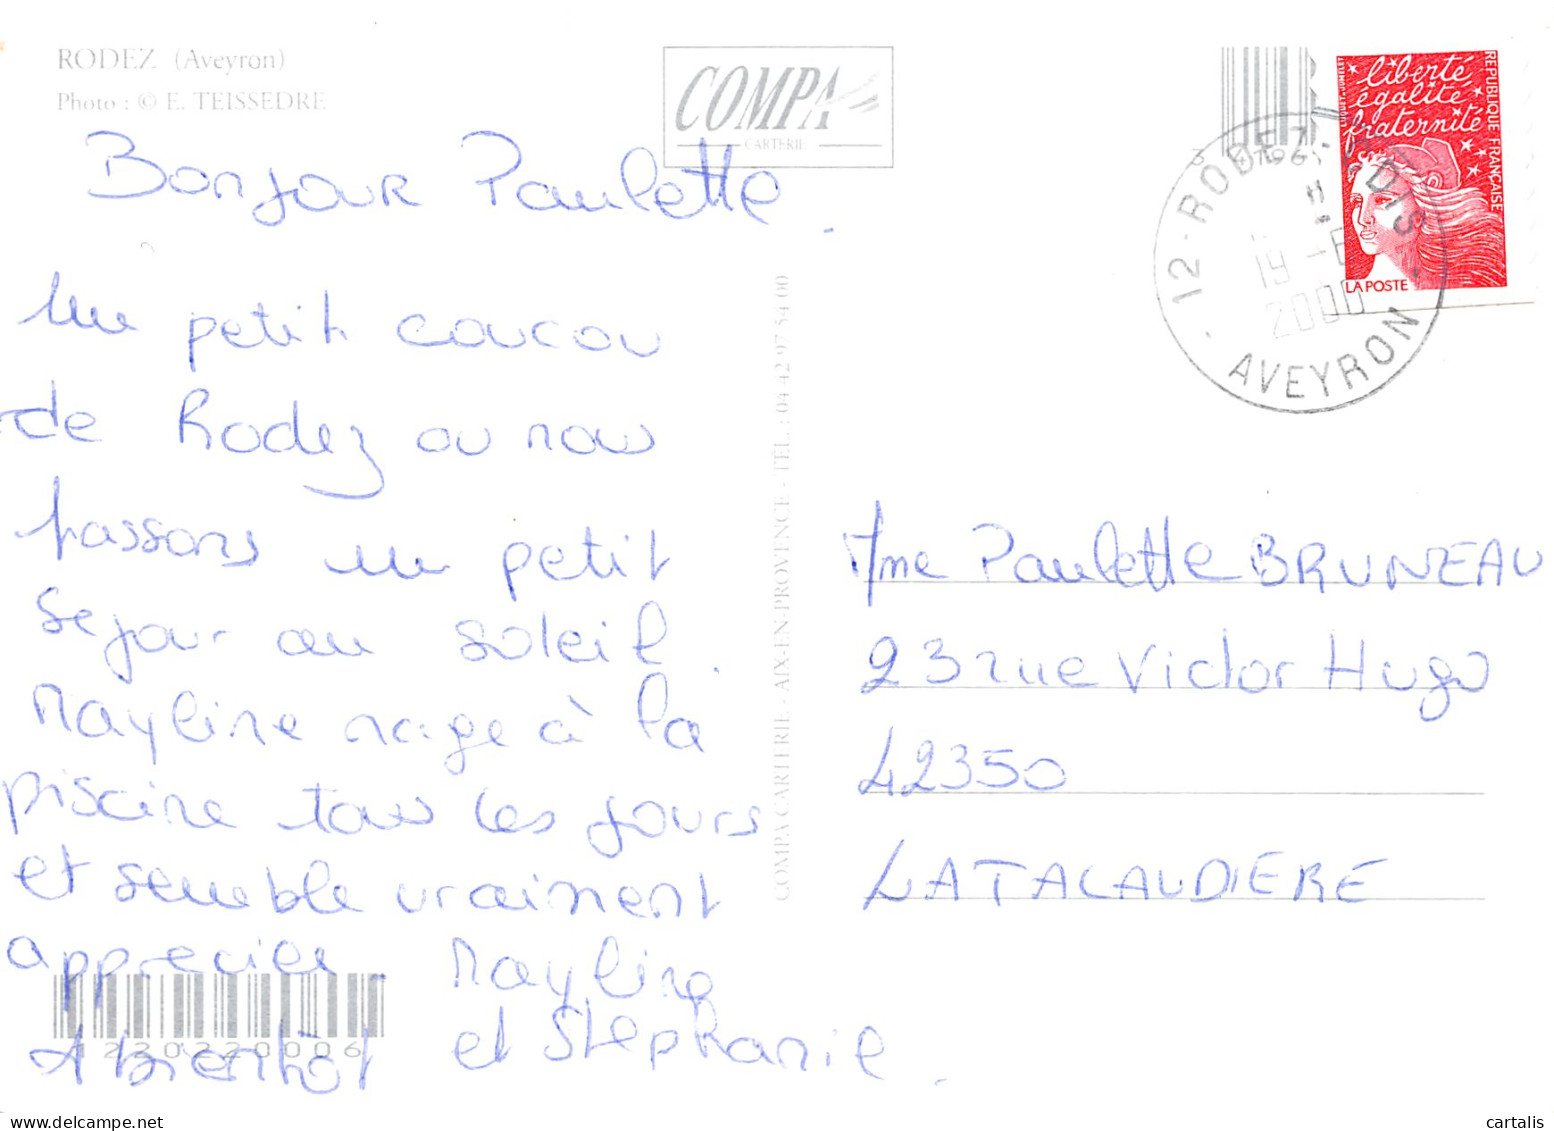 RODEZ (Aveyron)
Photo : © E. TEISSEDRE
COMPA
CARTERIE
Bonjour Paulette.
Un petit coucou
de Rodez ou nous
passons un petit
sejour au soleil.
Mayline nage à la
piscine tous les jours
et semble vraiment
apprecier. Mayline
et Stephanie.
A bientôt
1220220006
COMPA CARTERIE - AIX-EN-PROVENCE - TÉL. : 04 42 97 54 00
liberté
égalité
fraternité
REPUBLIQUE FRANÇAISE
LA POSTE
12 - RODEZ
19 - 6
2000
AVEYRON
Mme Paulette BRUNEAU
23 rue Victor Hugo
42350
LA TALAUDIERE
cartalis